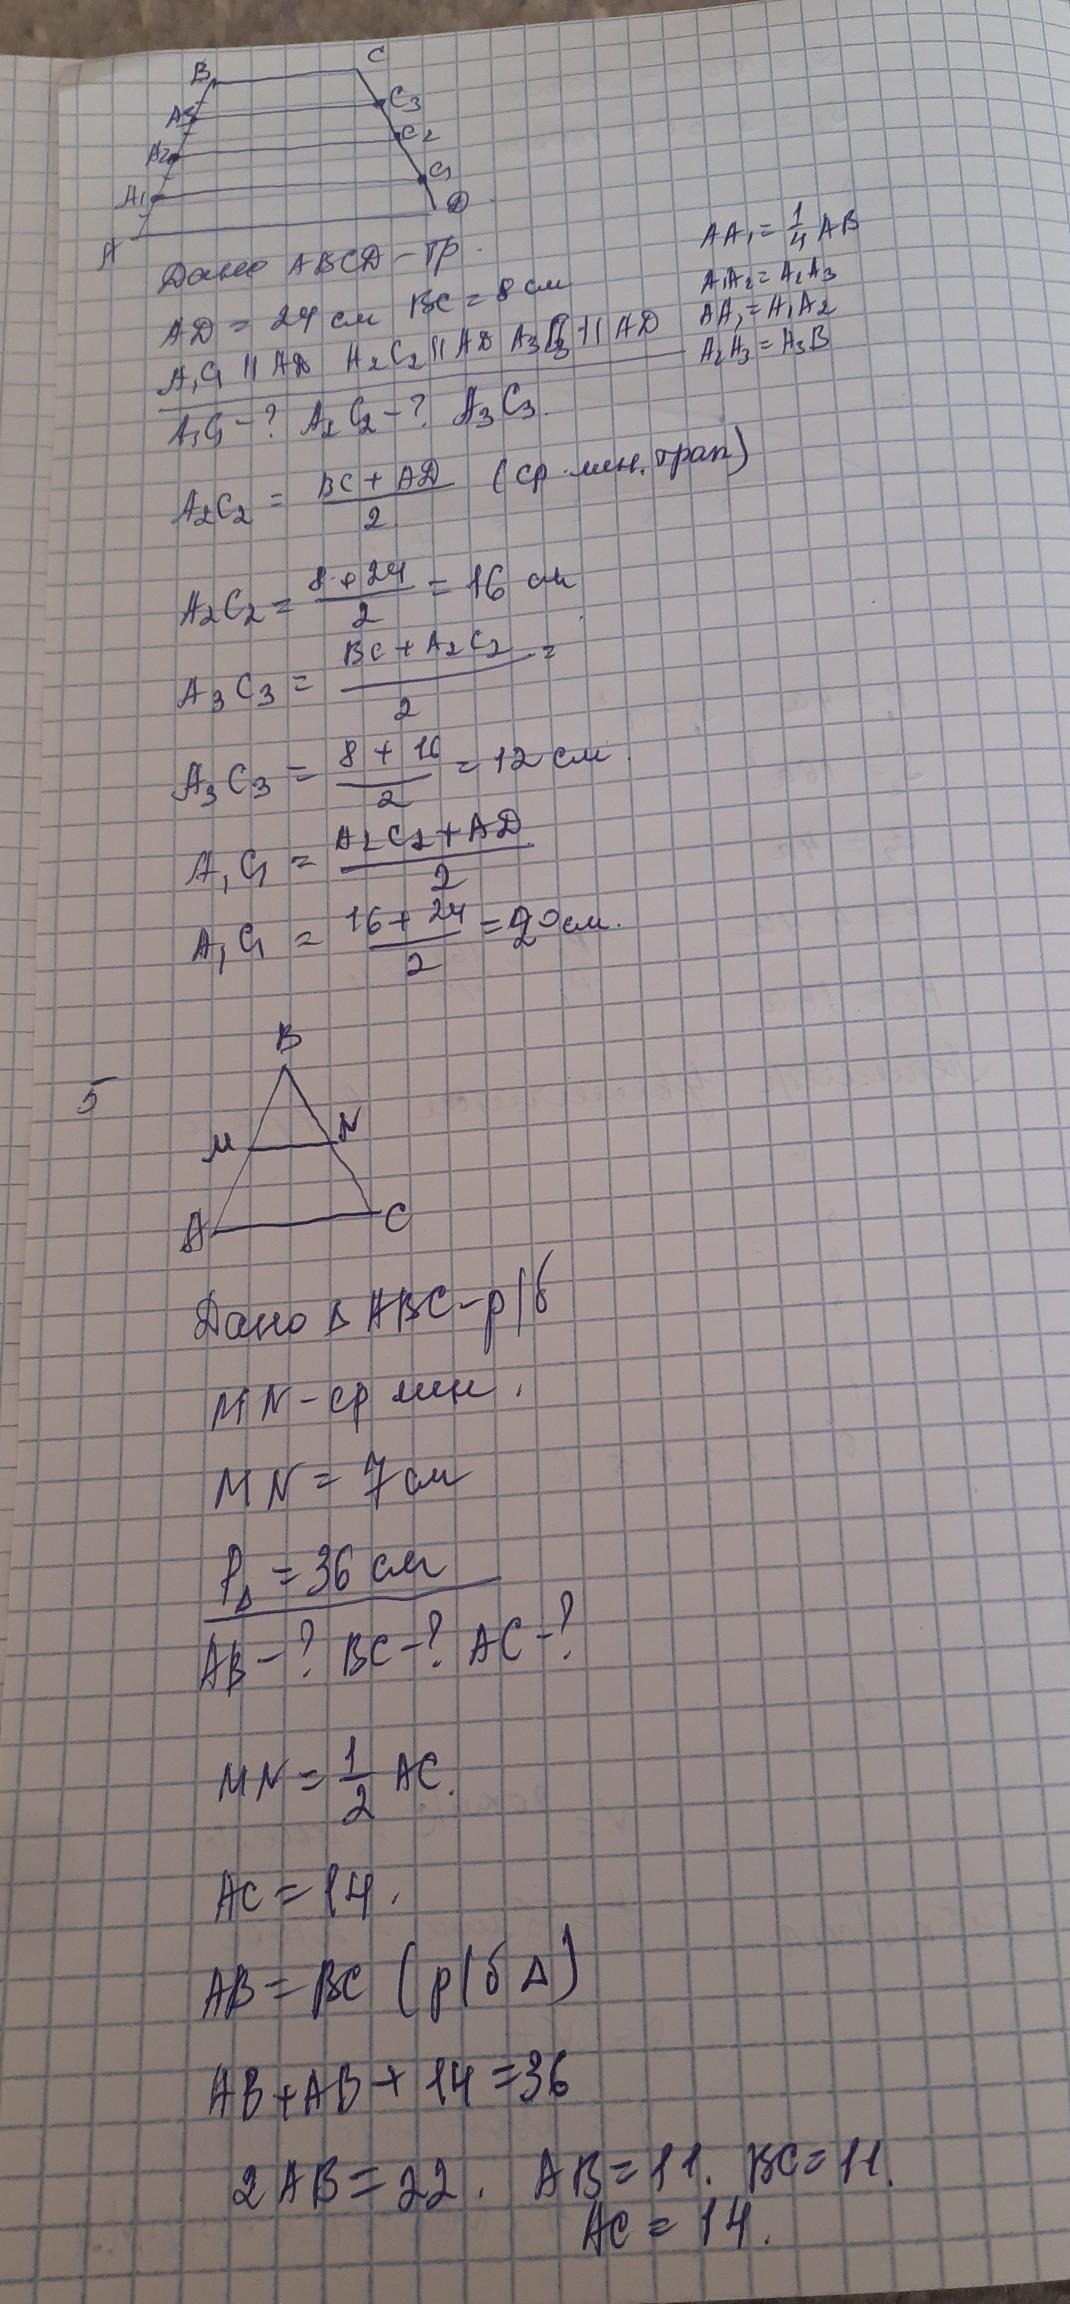 B C
A3 C3
A2 C2
A1 C1
A D
Дано ABCD - тр.
AD = 24 см BC = 8 см
A1C1 || AD A2C2 || AD A3C3 || AD
AA1 = 1/4 AB
A1A2 = A2A3
AA1 = A1A2
A2A3 = A3B
A1C1 - ? A2C2 - ? A3C3.
A2C2 = (BC + AD)/2 (ср. лин. трап)
A2C2 = (8 + 24)/2 = 16 см
A3C3 = (BC + A2C2)/2 =
A3C3 = (8 + 16)/2 = 12 см.
A1C1 = (A2C2 + AD)/2
A1C1 = (16 + 24)/2 = 20 см.
5
B
M N
A C
Дано Δ ABC - р/б
MN - ср лин.
MN = 7 см
PΔ = 36 см
AB - ? BC - ? AC - ?
MN = 1/2 AC.
AC = 14.
AB = BC (р/б Δ)
AB + AB + 14 = 36
2 AB = 22. AB = 11. BC = 11.
AC = 14.